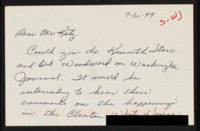 7-20-99
Dear Mr Katz,
Could you do Kenneth Starr
and Bob Woodward on Washington
Journal. It would be
interesting to hear their
comments on the happenings
in the Clinton White House